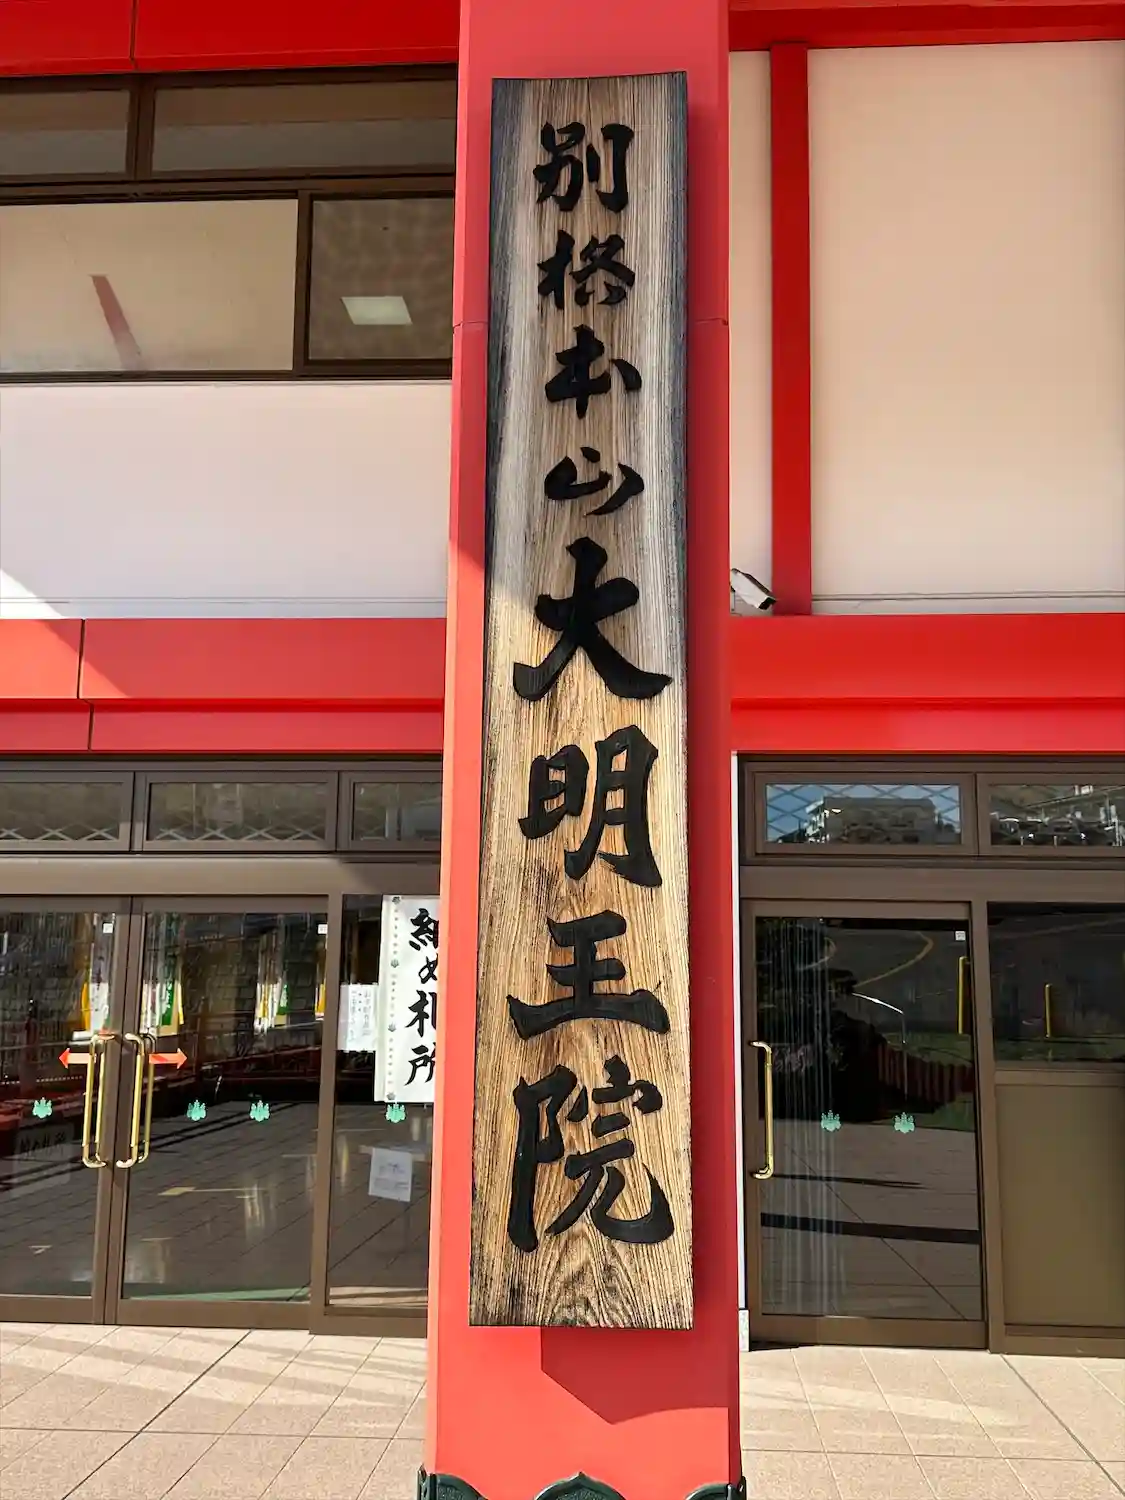 別格本山大明王院
納め札所